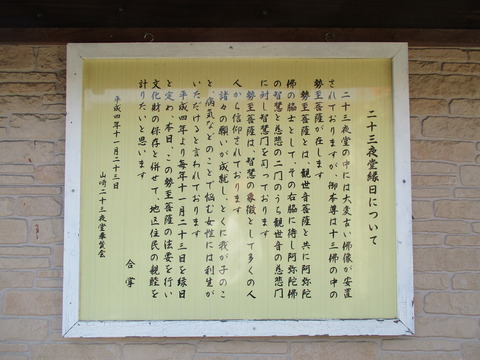 二十三夜堂縁日について
二十三夜堂の中には大変古い佛像が安置
されておりますが、御本尊は十三佛の中の
勢至菩薩が在します
勢至菩薩とは、観世音菩薩と共に阿弥陀
佛の脇士として、その右脇に侍し阿弥陀佛
の智慧と慈悲の二門のうち観世音の慈悲門
に対し智慧門を司っております
勢至菩薩は、智慧の象徴として多くの人
人から信仰されております
諸々の願いが成就し、とくに我が子のこ
と、病気などのことで悩む女性には利生が
いただけると言われております
平成四年より毎年十一月二十三日を縁日
と定め、本日、この勢至菩薩の法要を行い
文化財の保存と併せて、地区住民の親睦を
計りたいと思います
合掌
平成四年十一月二十三日
山崎二十三夜堂奉賛会